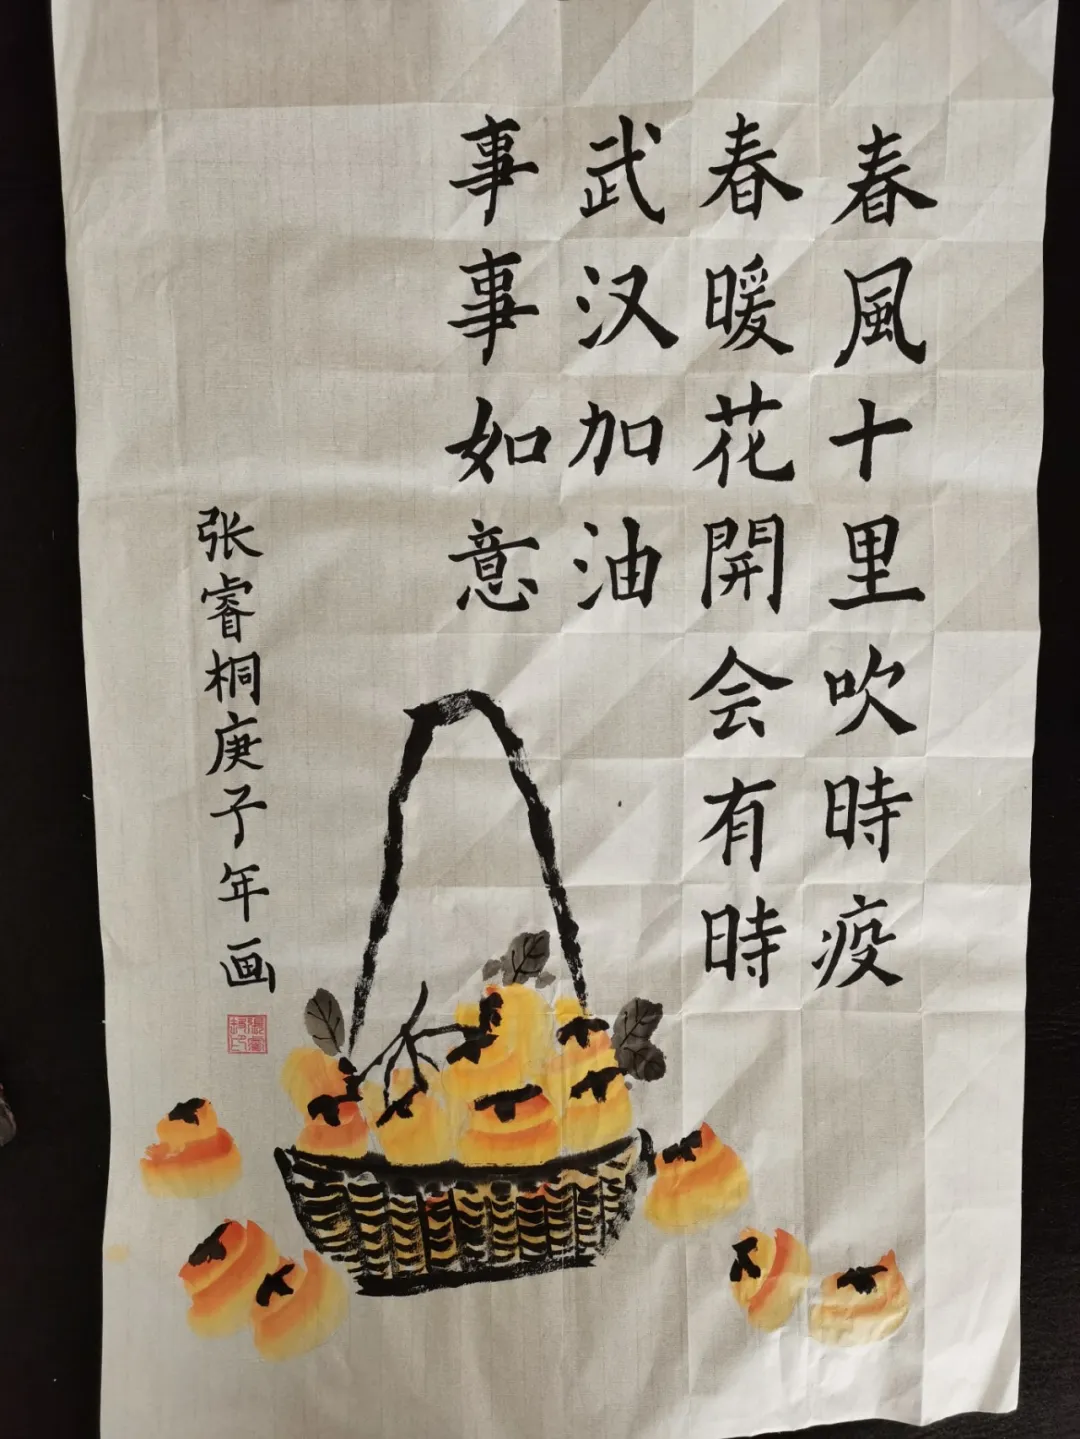 春風十里吹時疫
春暖花開会有時
武汉加油
事事如意
张睿桐庚子年画